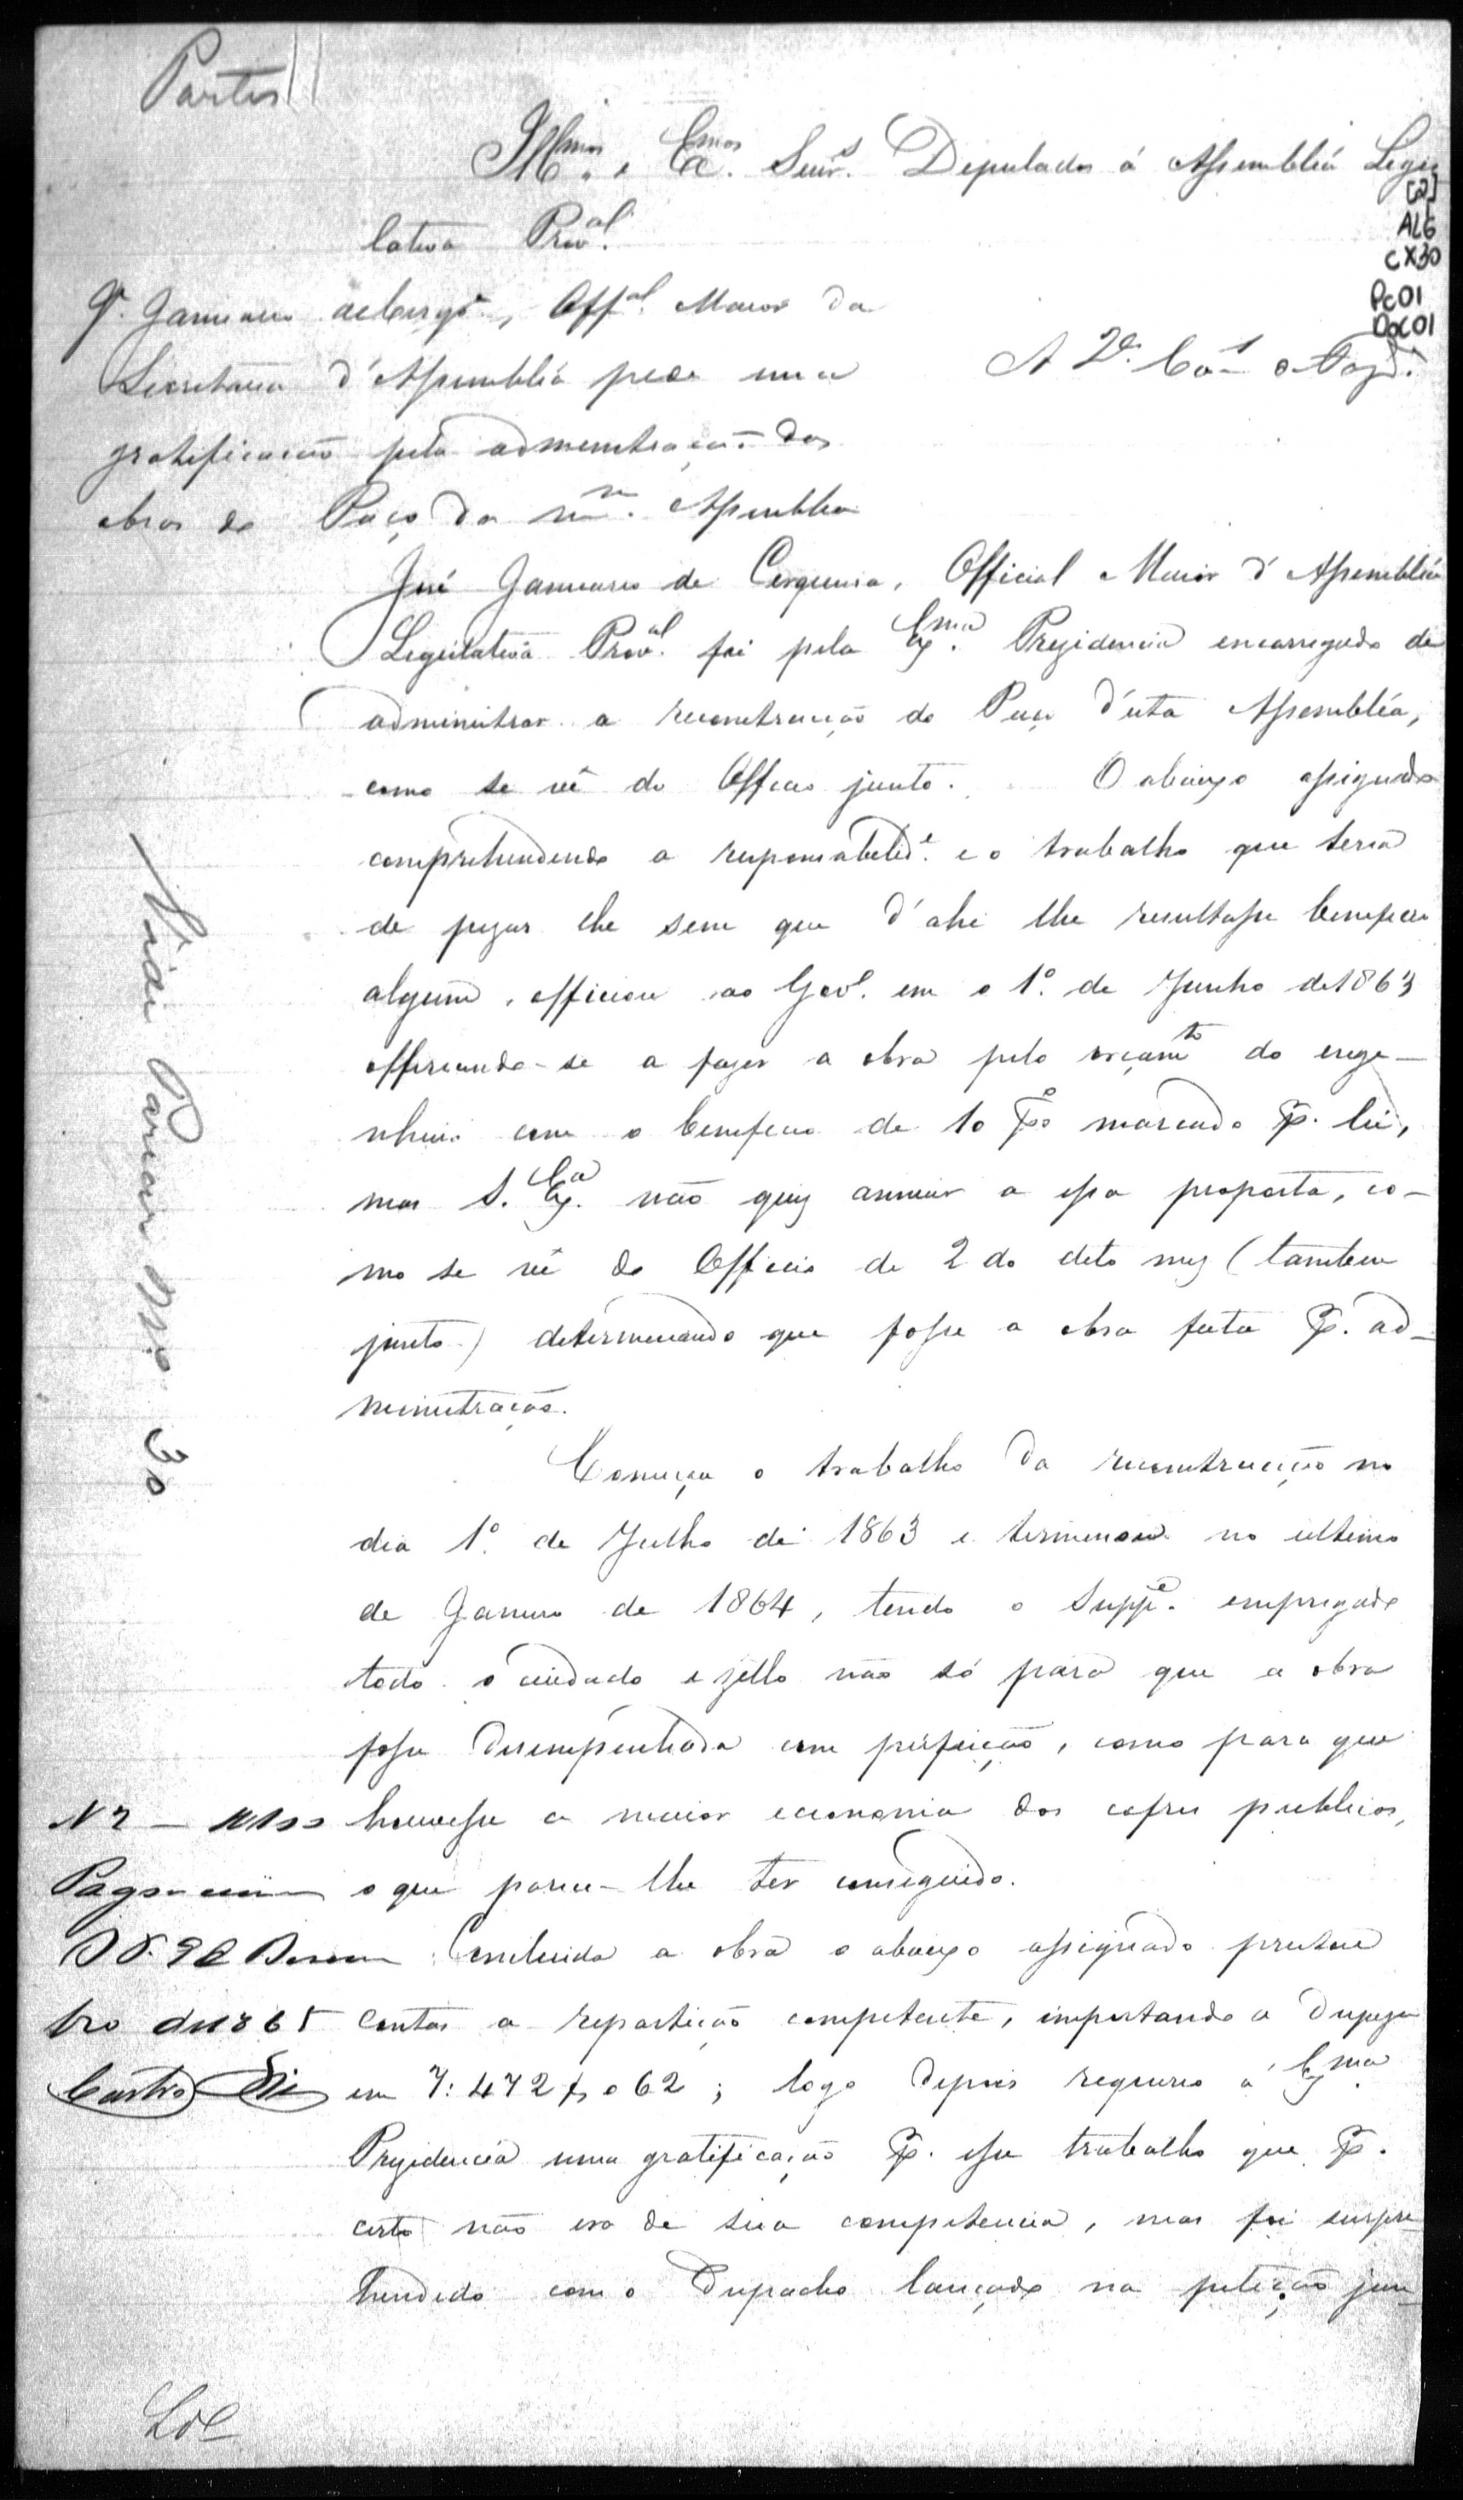 Partes
Illmos. e Exmos. Senrs. Deputados á Assembléa Legis
lativa Proval.
[2]
ALG
CX30
Pc01
Doc01
J. Januario de Cerqrª, Offal. Maior da
Secretaria d'Assembléa pede uma
gratificação pela admenistração das
obras do Paço da mma. Assemblea
A 2ª. Com
José Januario de Cerqueira, Official Maior d'Assembléa
Legislativa Proval. foi pela Exma. Prezidencia encarregado de
administrar a reconstrucção do Paço d'esta Assembléa,
como se vê do Officio junto. O abaixo assignado
comprehendendo a responsabelide. e o trabalho que teria
de pezar lhe sem que d'ahi lhe resultasse beneficio
algum, officiou ao Govo. em o 1º. de Junho de 1863
offerecendo-se a fazer a obra pelo orçamto do enge-
nheiro com o beneficio de 10 p% marcado p. lei,
mas S. Exa. não quiz annuir a essa proposta, co-
mo se vê do Officio de 2 do dito mez (tambem
junto) determinando que fosse a obra feita p. ad-
ministração.
Começou o trabalho da reconstrucção no
dia 1º. de Julho de 1863 e terminou no ultimo
de Janeiro de 1864, tendo o Suppe. empregado
todo o cuidado e zello não só para que a obra
fosse desempenhada com perfeição, como para que
houvesse a maior economia dos cofres publicos,
o que parece-lhe ter conseguido.
Concluida a obra o abaixo assignado prestou
contas a repartição competente, importando a despeza
em 7:472$062; logo depois requereo á Exma.
Prezidencia uma gratificação p. esse trabalho que p.
certo não era de sua competencia, mas foi surpre-
hendido com o Despacho lançado na petição jun-
Vide Parecer Nº 30
Nº 2 — 100
Pagou cem
de 1865
Castro